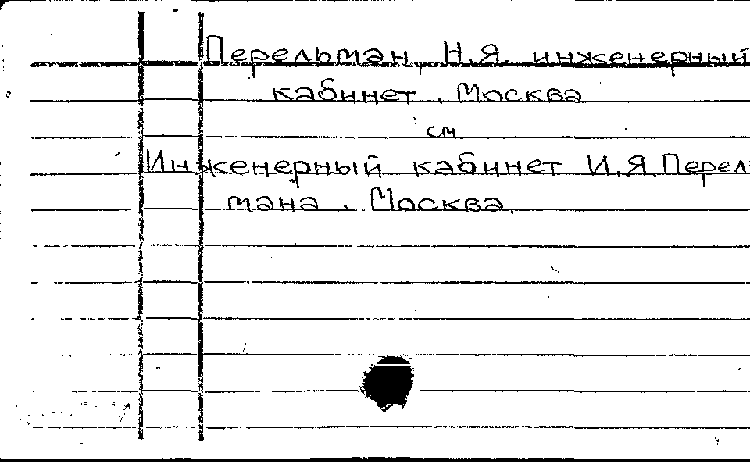 Перельман, Н.Я. инженерный
кабинет. Москва
см
Инженерный кабинет И.Я. Перель
мана. Москва